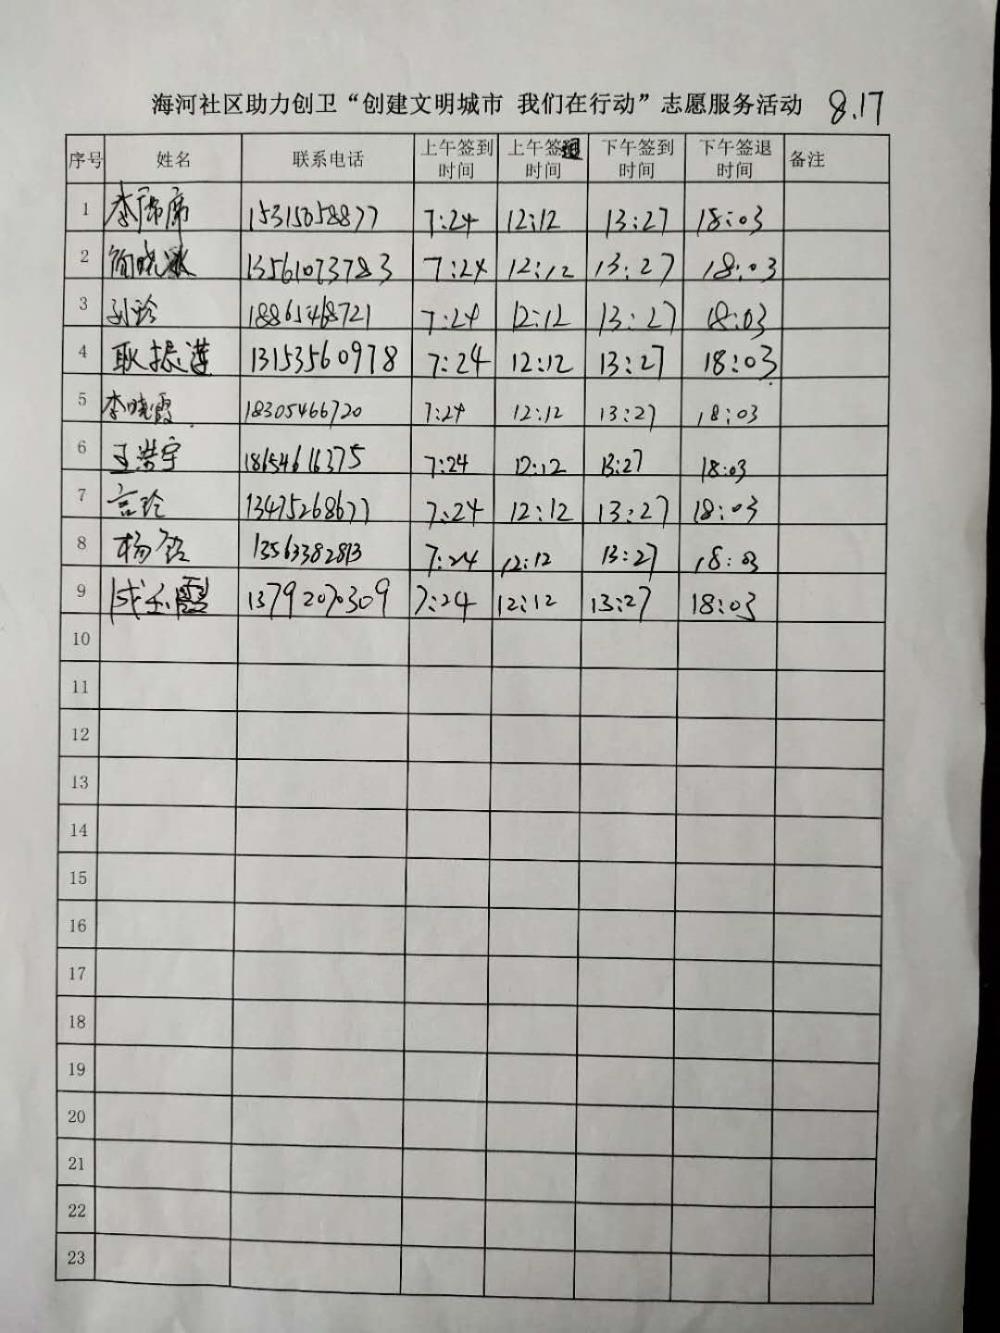 海河社区助力创卫“创建文明城市 我们在行动”志愿服务活动 8.17
序号 姓名 联系电话 上午签到时间 上午签退时间 下午签到时间 下午签退时间 备注
1 李 席 15315058877 7:24 12:12 13:27 18:03
2 晓 13561073783 7:24 12:12 13:27 18:03
3 孙玲 18865468721 7:24 12:12 13:27 18:03
4 耿振 13153560978 7:24 12:12 13:27 18:03
5 李晓霞 18305466720 7:24 12:12 13:27 18:03
6 王浩宇 18654616375 7:24 12:12 13:27 18:03
7 言玲 13475268677 7:24 12:12 13:27 18:03
8 杨 13563382813 7:24 12:12 13:27 18:03
9 成玉霞 13792070309 7:24 12:12 13:27 18:03
10
11
12
13
14
15
16
17
18
19
20
21
22
23